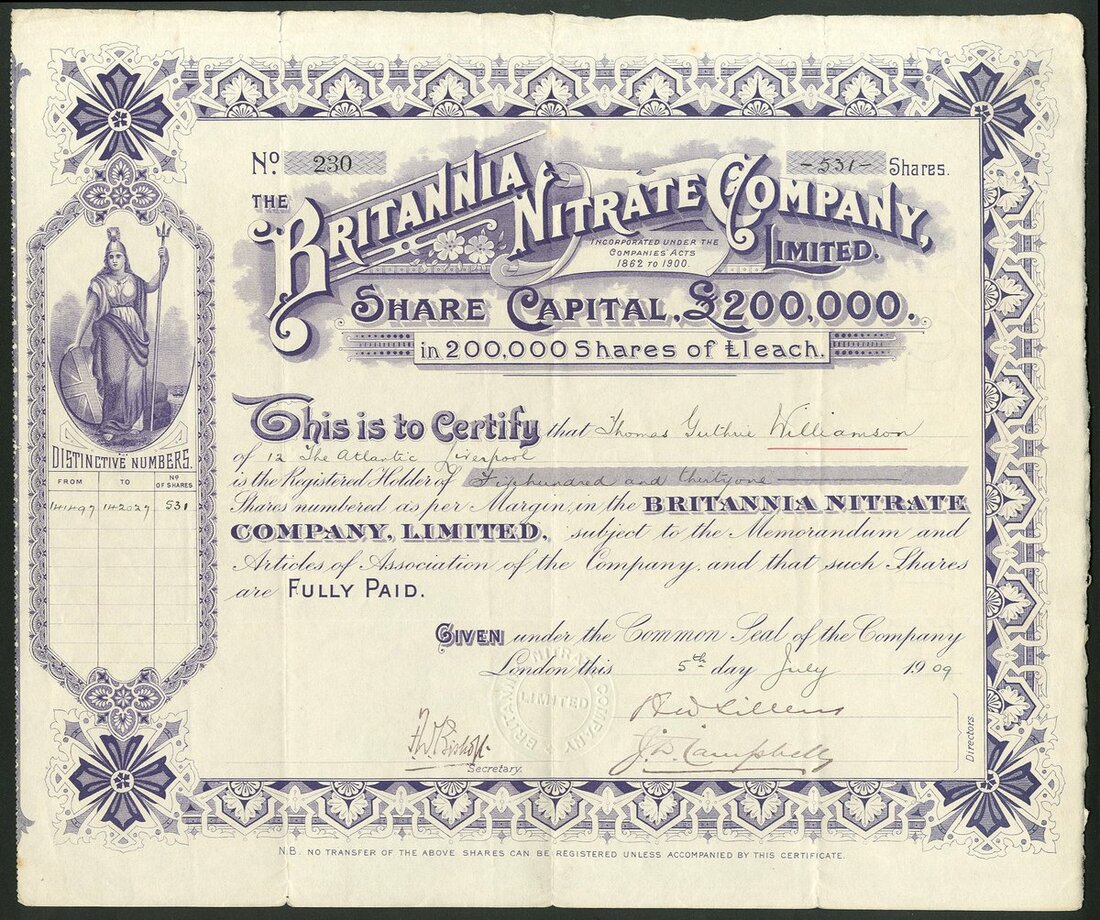 No. 230 -531- Shares.
THE BRITANNIA NITRATE COMPANY, LIMITED.
INCORPORATED UNDER THE
COMPANIES' ACTS
1862 TO 1900.
SHARE CAPITAL, £200,000.
in 200,000 Shares of £1 each.
This is to Certify that Thomas Guthrie Williamson
of 12 The Atlantic Liverpool
is the Registered Holder of Five hundred and thirty one
Shares numbered as per Margin, in the BRITANNIA NITRATE
COMPANY, LIMITED, subject to the Memorandum and
Articles of Association of the Company, and that such Shares
are FULLY PAID.
GIVEN under the Common Seal of the Company
London this 5th day July 1909
BRITANNIA NITRATE COMPANY LIMITED
J. D. Campbell
Directors.
Secretary.
DISTINCTIVE NUMBERS.
FROM TO No OF SHARES
141497 142027 531
N.B. NO TRANSFER OF THE ABOVE SHARES CAN BE REGISTERED UNLESS ACCOMPANIED BY THIS CERTIFICATE.